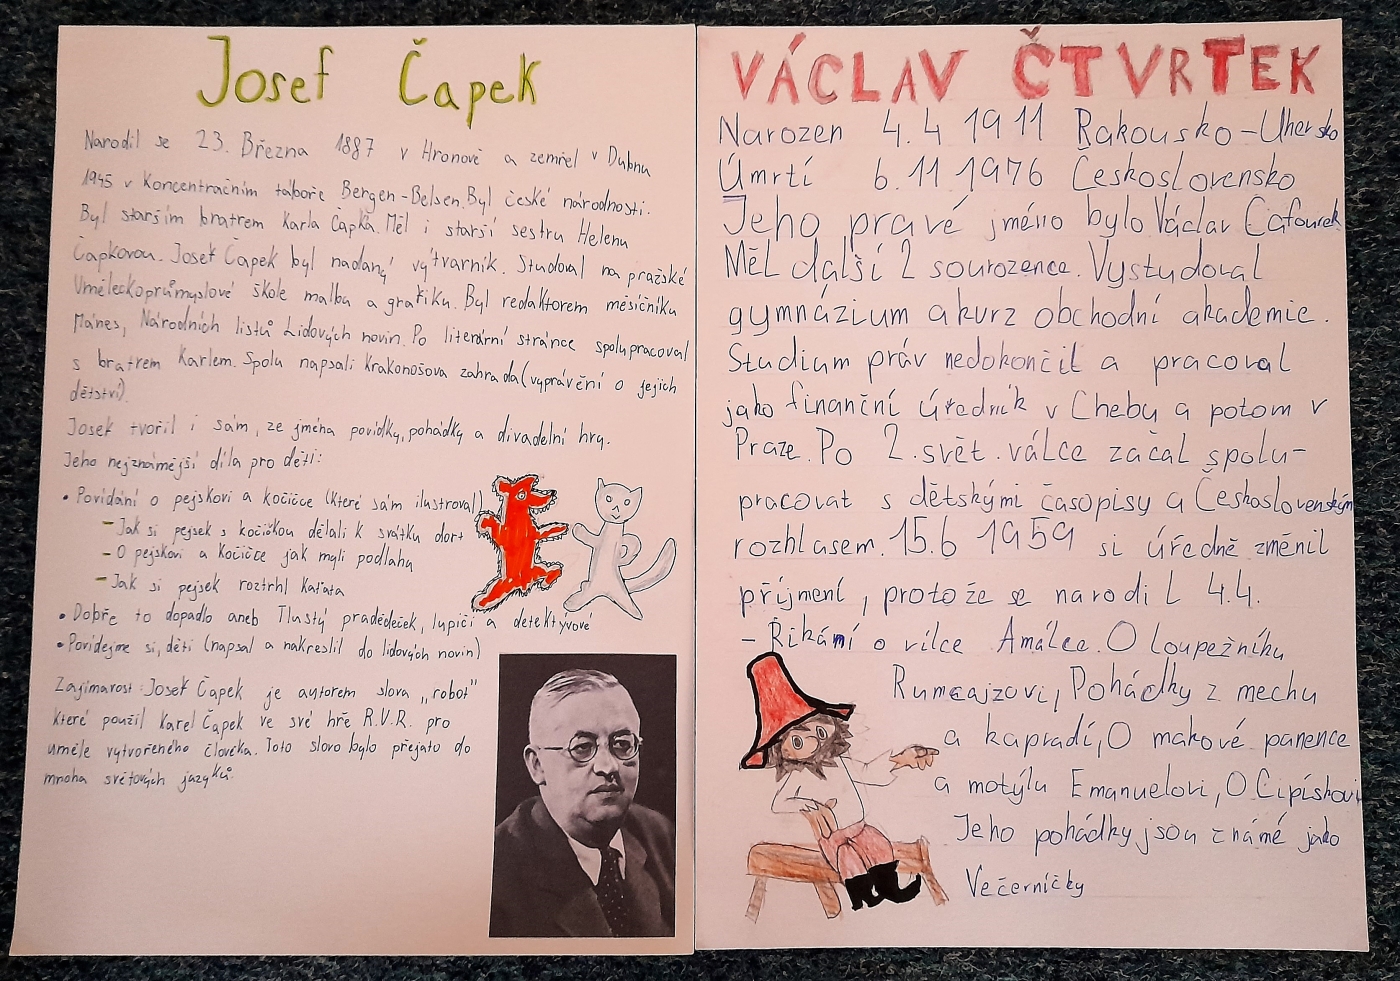 Josef Čapek
Narodil se 23. Března 1887 v Hronově a zemřel v Dubnu
1945 v Koncentračním táboře Bergen-Belsen. Byl české národnosti.
Byl starším bratrem Karla Čapka. Měl i starší sestru Helenu
Čapkovou. Josef Čapek byl nadaný výtvarník. Studoval na pražské
Uměleckoprůmyslové škole malbu a grafiku. Byl redaktorem měsíčníku
Mánes, Národních listů Lidových novin. Po literární stránce spolupracoval
s bratrem Karlem. Spolu napsali Krakonošova zahrada (vyprávění o jejich
dětství).
Josek tvořil i sám, ze jména povídky, pohádky a divadelní hry.
Jeho nejznámější díla pro děti:
• Povídání o pejskovi a kočičce (které sám ilustroval)
- Jak si pejsek s kočičkou dělali k svátku dort
- O pejskovi a kočičce jak myli podlahu
- Jak si pejsek roztrhl kaťata
• Dobře to dopadlo aneb Tlustý pradědeček, lupiči a detektývové
• Povídejme si, děti (napsal a nakreslil do lidových novin)
Zajímavost: Josef Čapek je autorem slova „robot"
které použil Karel Čapek ve své hře R.V.R. pro
uměle vytvořeného člověka. Toto slovo bylo přejato do
mnoha světových jazyků.
VÁCLAV ČTVRTEK
Narozen 4.4 1911 Rakousko-Uhersko
Úmrtí 6.11.1976 Československo
Jeho pravé jméno bylo Václav Cafourek
Měl další 2 sourozence. Vystudoval
gymnázium a kurz obchodní akademie.
Studium práv nedokončil a pracoval
jako finanční úředník v Chebu a potom v
Praze. Po 2. svět. válce začal spolu-
pracovat s dětskými časopisy a Československým
rozhlasem. 15.6 1959 si úředně změnil
příjmení, protože se narodil 4.4.
- Říkání o vílce Amálce. O loupežníku
Rumcajzovi, Pohádky z mechu
a kapradí, O makové panence
a motýlu Emanuelovi, O Cipískovi
Jeho pohádky jsou známé jako
Večerníčky